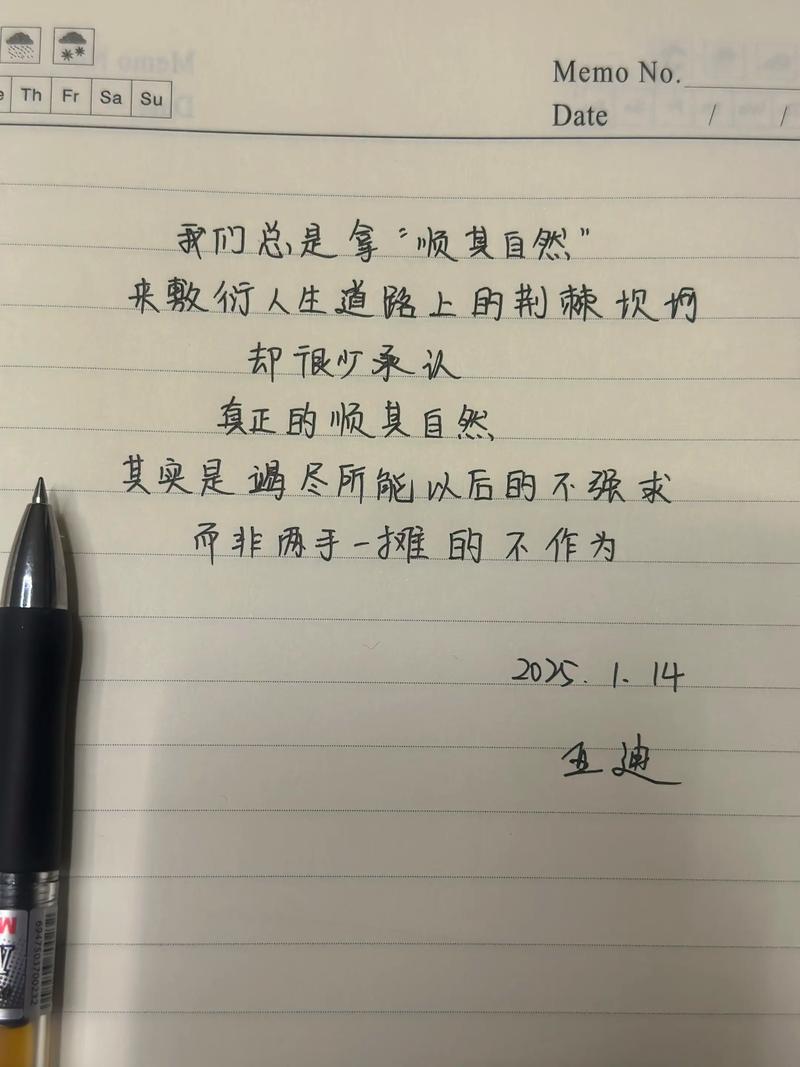 Memo No.
Th Fr Sa Su
Date / /
我们总是拿“顺其自然”
来敷衍人生道路上的荆棘坎坷
却很少承认
真正的顺其自然
其实是竭尽所能以后的不强求
而非两手一摊的不作为
2025.1.14
亚迪
6947503700232